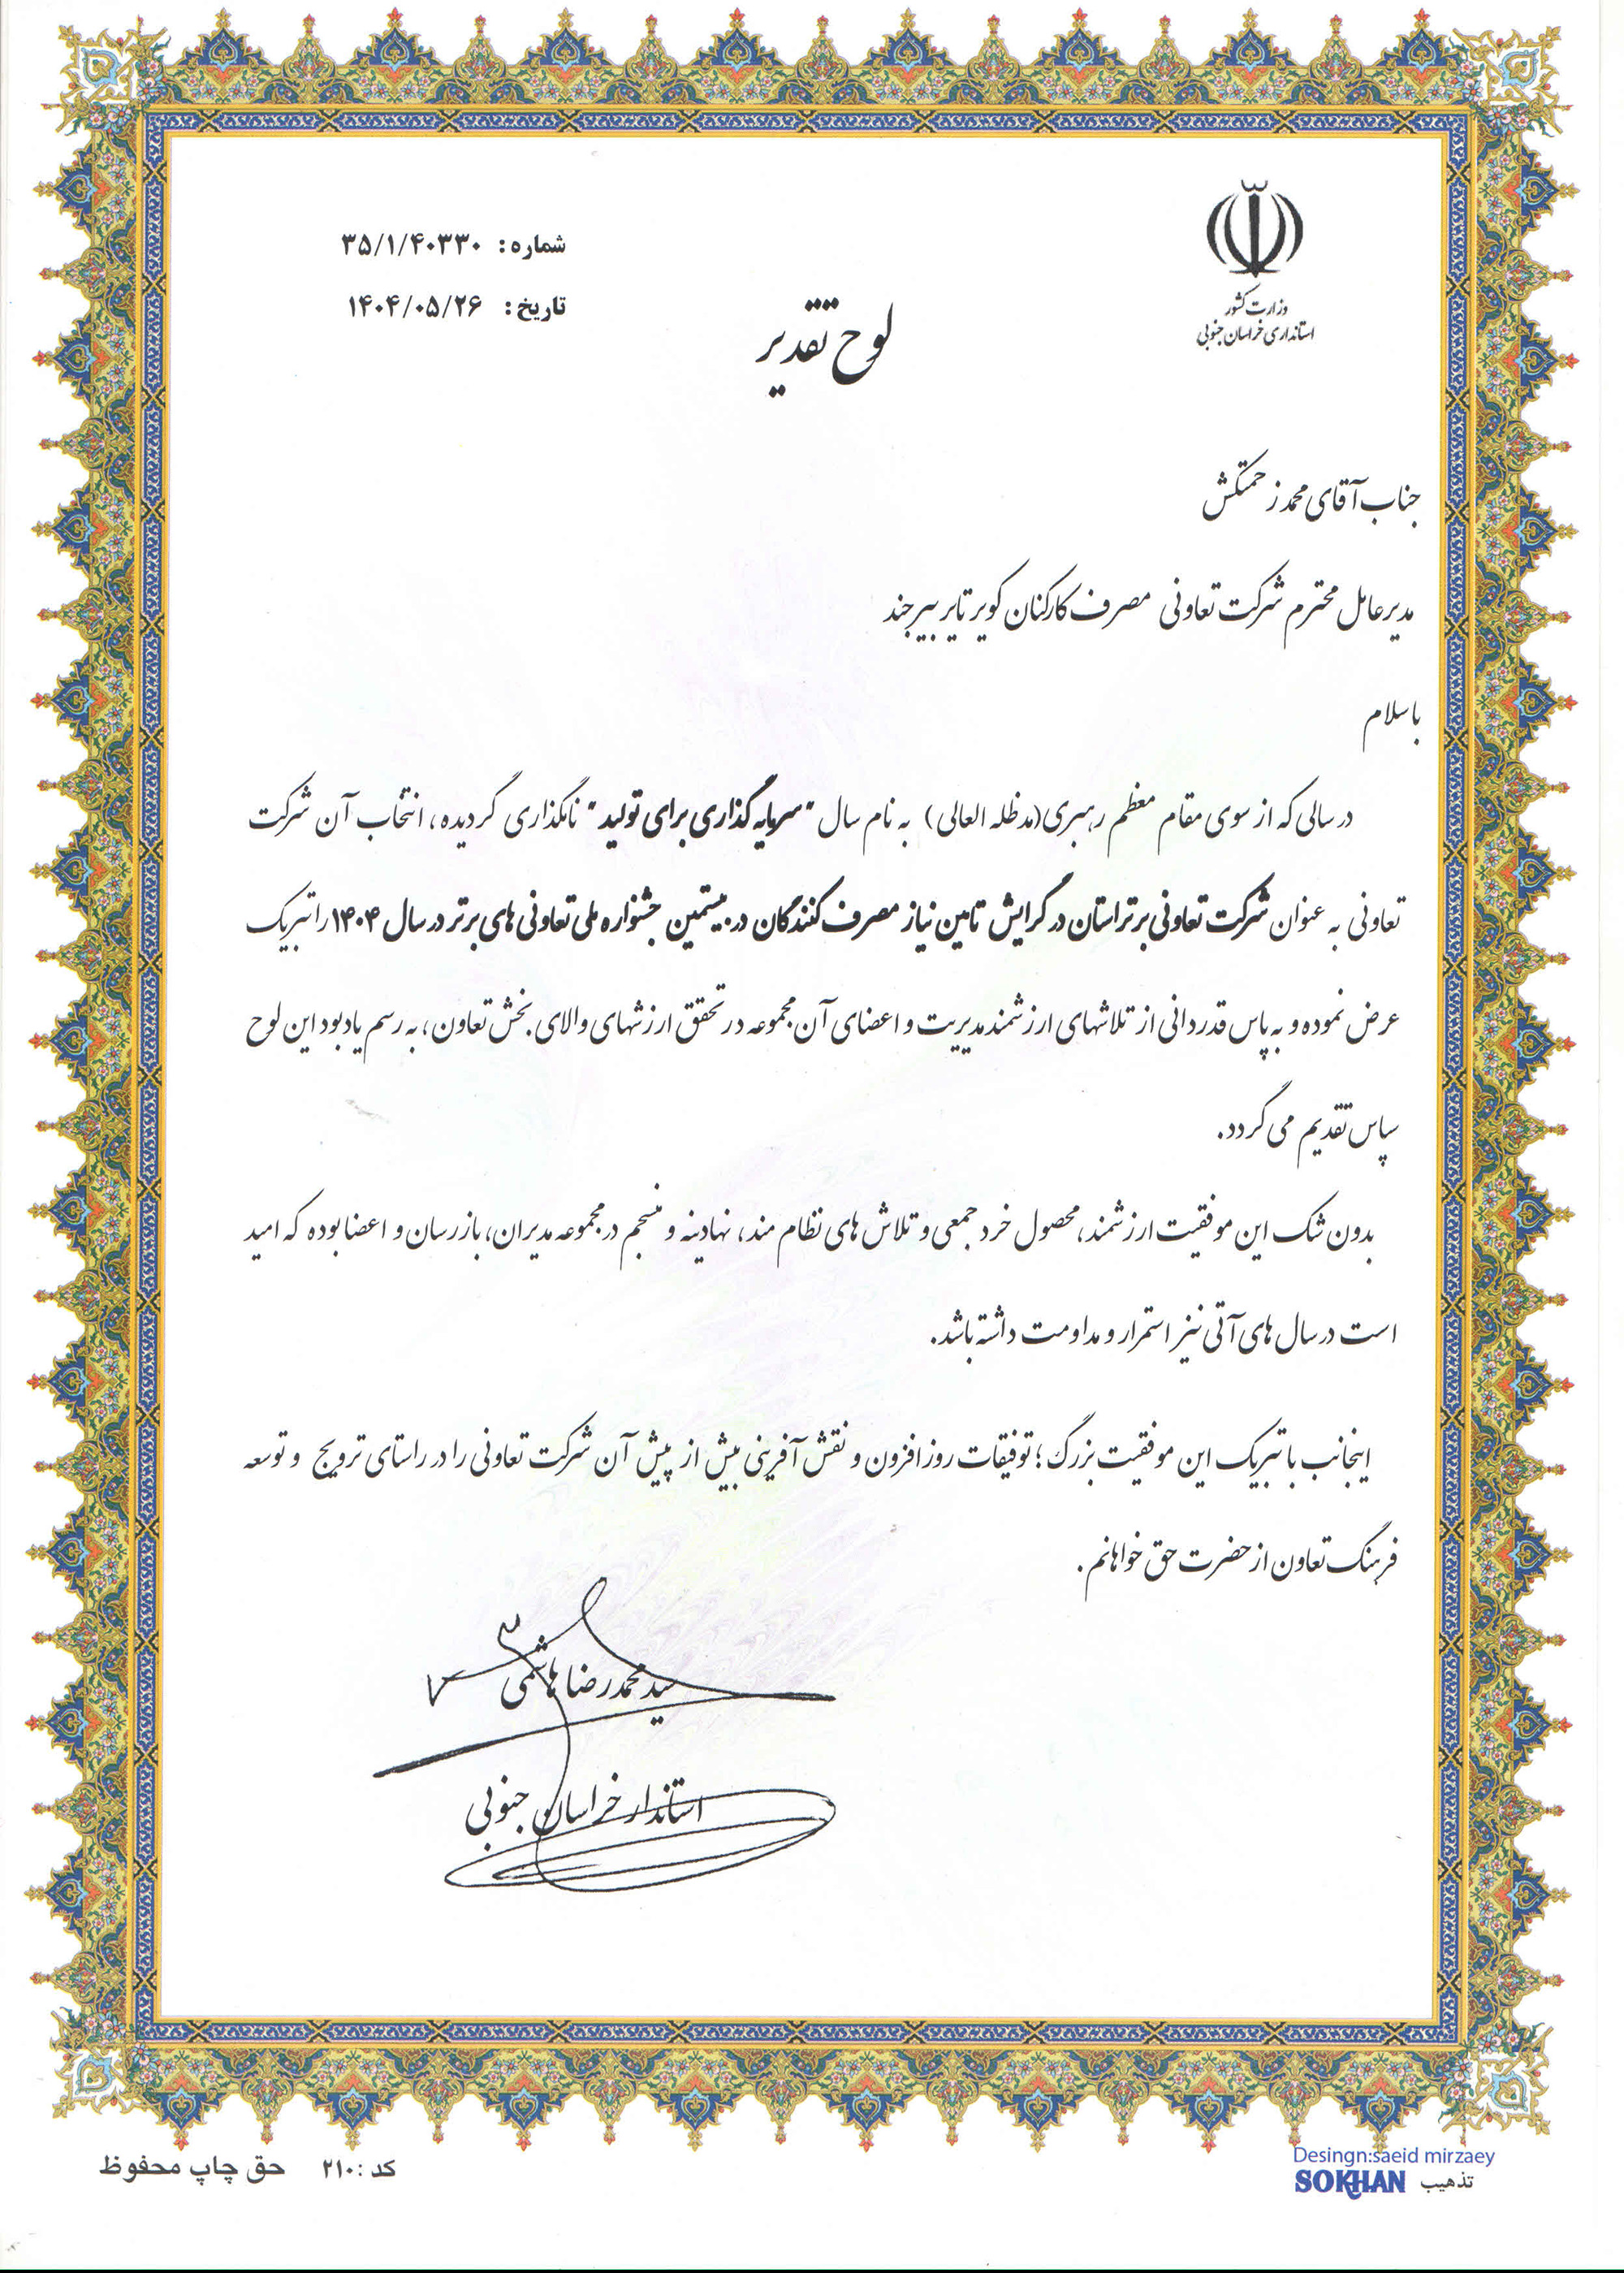 وزارت کشور
استانداری خراسان جنوبی
شماره: ۳۵/۱/۴۰۳۳۰
تاریخ: ۱۴۰۴/۰۵/۲۶
لوح تقدیر
جناب آقای محمد زحمتکش
مدیرعامل محترم شرکت تعاونی مصرف کارکنان کویر تایر بیرجند
با سلام
در سالی که از سوی مقام معظم رهبری(مدظله العالی) به نام سال "سرمایه گذاری برای تولید" نامگذاری گردیده، انتخاب آن شرکت
تعاونی به عنوان شرکت تعاونی برتر استان در گرایش تامین نیاز مصرف کنندگان در بیستمین جشنواره ملی تعاونی های برتر در سال ۱۴۰۴ را تبریک
عرض نموده و به پاس قدردانی از تلاشهای ارزشمند مدیریت و اعضای آن مجموعه در تحقق ارزشهای والای بخش تعاون، به رسم یادبود این لوح
سپاس تقدیم می گردد.
بدون شک این موفقیت ارزشمند، محصول خرد جمعی و تلاش های نظام مند، نهادینه و منسجم در مجموعه مدیران، بازرسان و اعضا بوده که امید
است در سال های آتی نیز استمرار و مداومت داشته باشد.
اینجانب با تبریک این موفقیت بزرگ؛ توفیقات روزافزون و نقش آفرینی بیش از پیش آن شرکت تعاونی را در راستای ترویج و توسعه
فرهنگ تعاون از حضرت حق خواهانم.
سید محمدرضا هاشمی
استاندار خراسان جنوبی
Desingn:saeid mirzaey
تذهیب SOKHAN
کد :۲۱۰ حق چاپ محفوظ